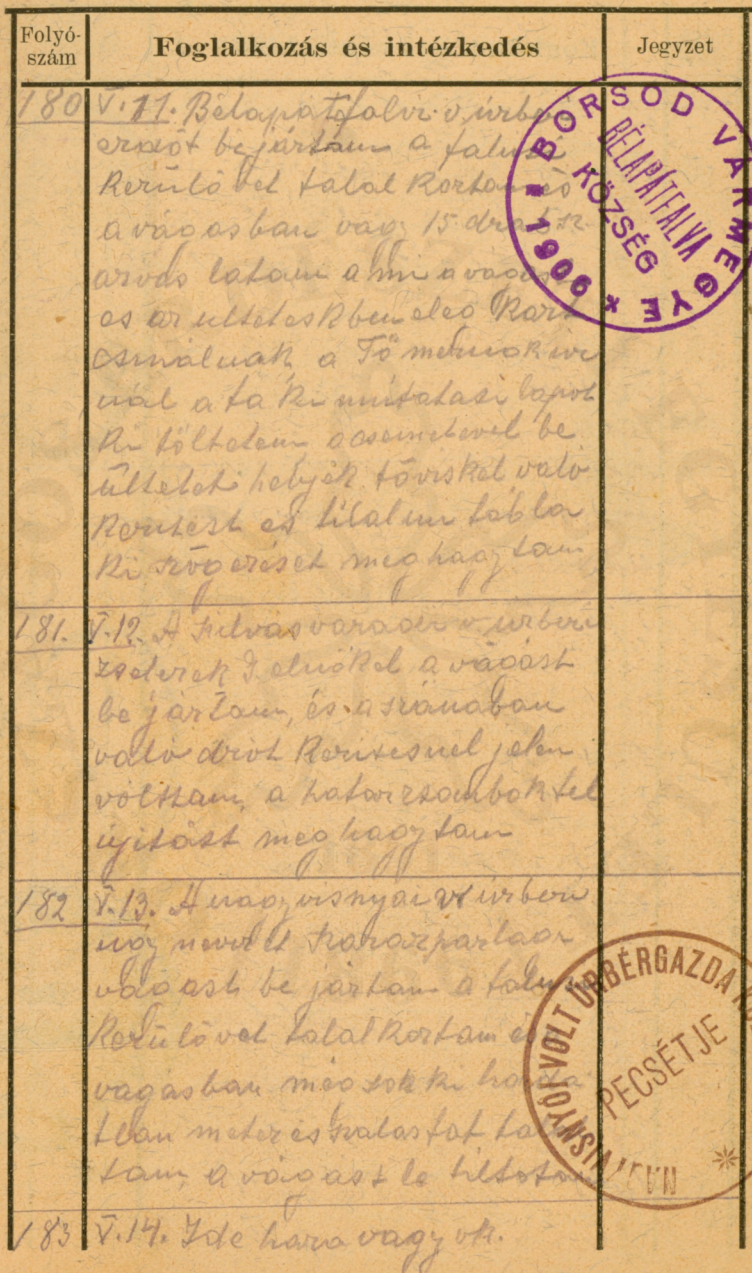 Folyó-
szám
Foglalkozás és intézkedés
Jegyzet
180 V. 11. Bélapátfalvi v. urberi
erdőt bejártam a falusi
Kerülővel talalkoztam és
a vágásban vag 15 drab sz
arvas latam a mi a vágast
es az ulteteskben eleg Kart
csinálnak, a Fő mernok
nál a fa Ki mutatasi lapot
Ki töltetem be
ülteteti helyek töviskel való
Keritest es tilalmi tábla
Ki szögezését meg hagytam
BORSOD VÁRMEGYE * 1906 *
BÉLAPÁTFALVA
KÖZSÉG
181. V. 12. A Szilvasvaradi v. urberi
zselerek elnökel a vágást
be jártam, és a
való drót Keritesnel jelen
vóltam, a hatarzsombok fel
újitást meg hagytam
182 V. 13. A nagyvisnyai v urberi
ugy nevezet
vágast be jártam a falusi
Kerülővel talalkoztam és
vagásban még sok ki horda
tlan meter és szalasfat
tam, a vágast le tiltotam
VOLT URBÉRGAZDA
PECSÉTJE
183 V. 14. Ide haza vagyok.